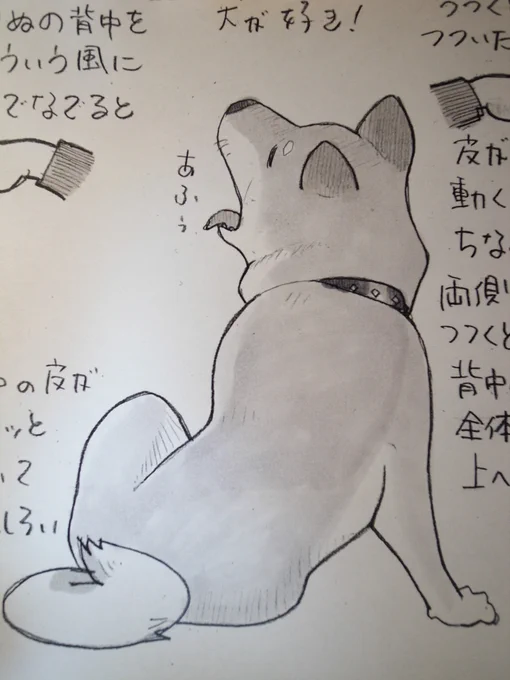 ぬの背中を
ういう風に
でなでると
犬が好き!
つつく
つついた
あふぅ
皮が
動く
ちな
両側
つつくと
背中
全体
上へ
の皮が
ッと
て
しろい